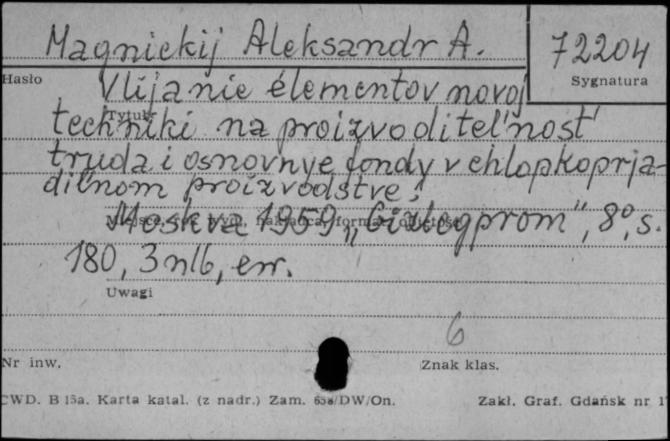 Magnickij Aleksandr A.
72204
Hasło
Sygnatura
Vlijanie élementov novoj
Tytuł
techniki na proizvoditel'nost'
truda i osnovnye fondy v chlopkoprja-
dil'nom proizvodstve.
Moskva 1959 „Gizlegprom”, 8°, s.
180, 3 nlb, err.
Uwagi
6
Nr inw.
Znak klas.
CWD. B 15a. Karta katal. (z nadr.) Zam. 658/DW/On.
Zakł. Graf. Gdańsk nr 1